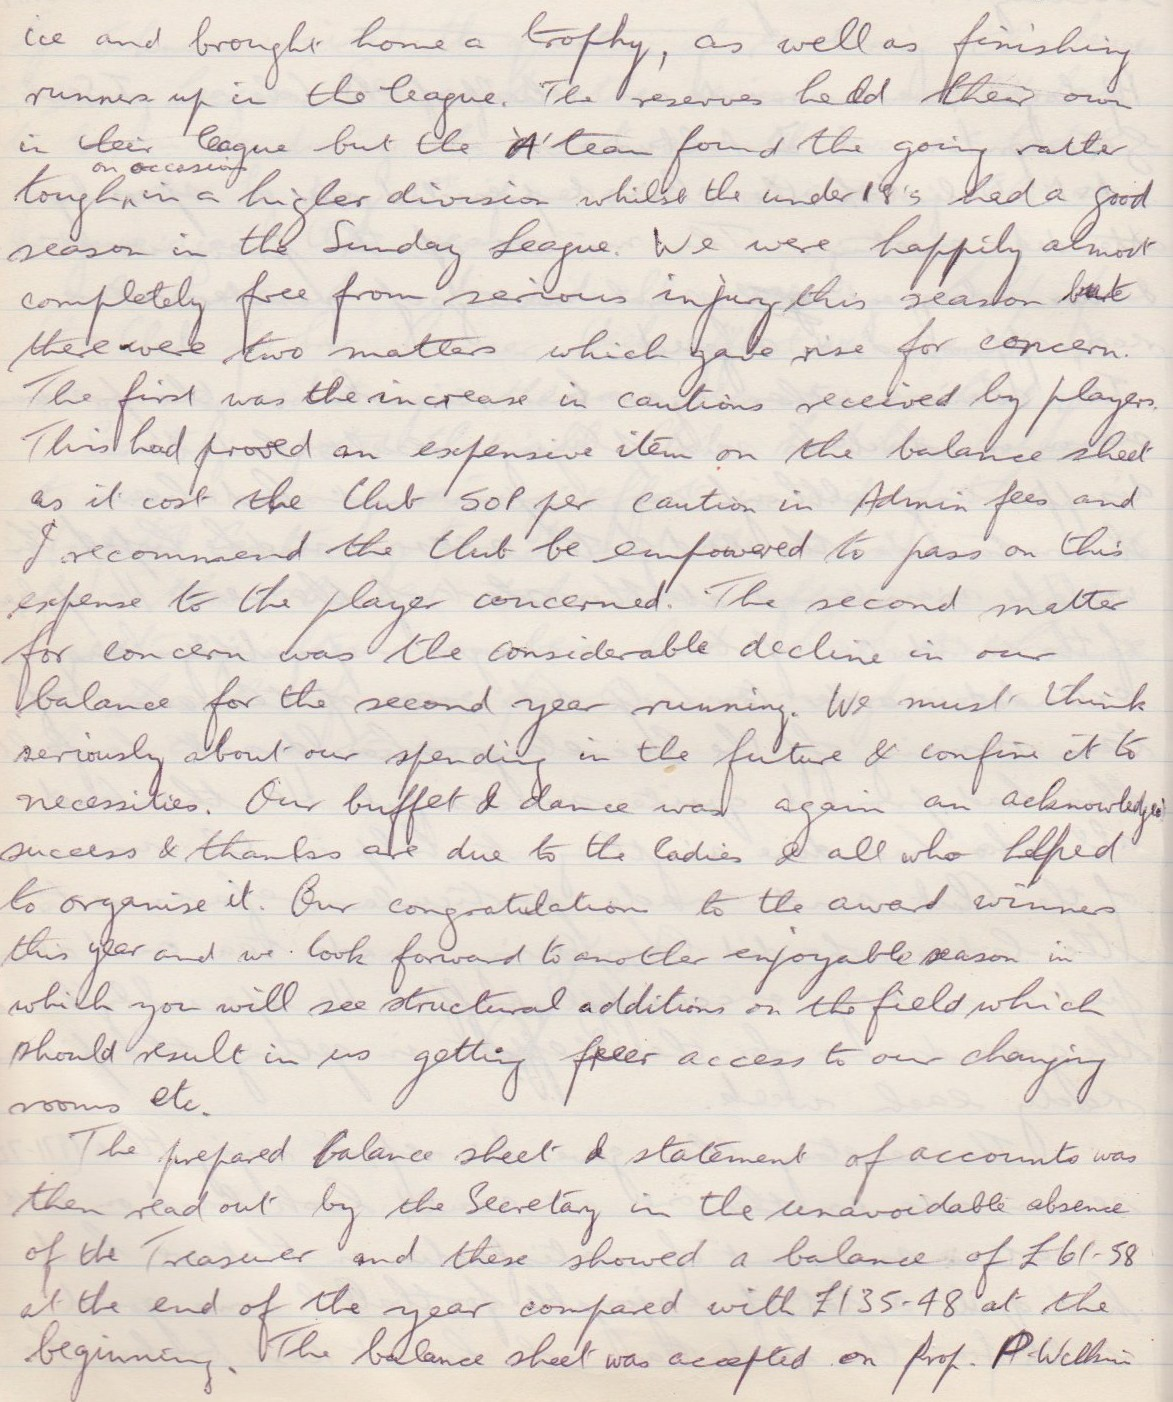 ice and brought home a trophy, as well as finishing
runners up in the league. The reserves held their own
in their league but the 'A' team found the going rather
on occasion
tough, in a higher division whilst the under 18's had a good
season in the Sunday League. We were happily almost
completely free from serious injury this season but
there were two matters which gave rise for concern.
The first was the increase in cautions received by players.
This had proved an expensive item on the balance sheet
as it cost the Club 50P per caution in Admin fees and
I recommend the Club be empowered to pass on this
expense to the player concerned. The second matter
for concern was the considerable decline in our
balance for the second year running. We must think
seriously about our spending in the future & confine it to
necessities. Our buffet & dance was again an acknowledged
success & thanks are due to the ladies & all who helped
to organise it. Our congratulations to the award winners
this year and we look forward to another enjoyable season in
which you will see structural additions on the field which
should result in us getting freer access to our changing
rooms etc.
The prepared balance sheet & statement of accounts was
then read out by the Secretary in the unavoidable absence
of the Treasurer and these showed a balance of £61-58
at the end of the year compared with £135-48 at the
beginning. The balance sheet was accepted on Prop. P. Wilkin